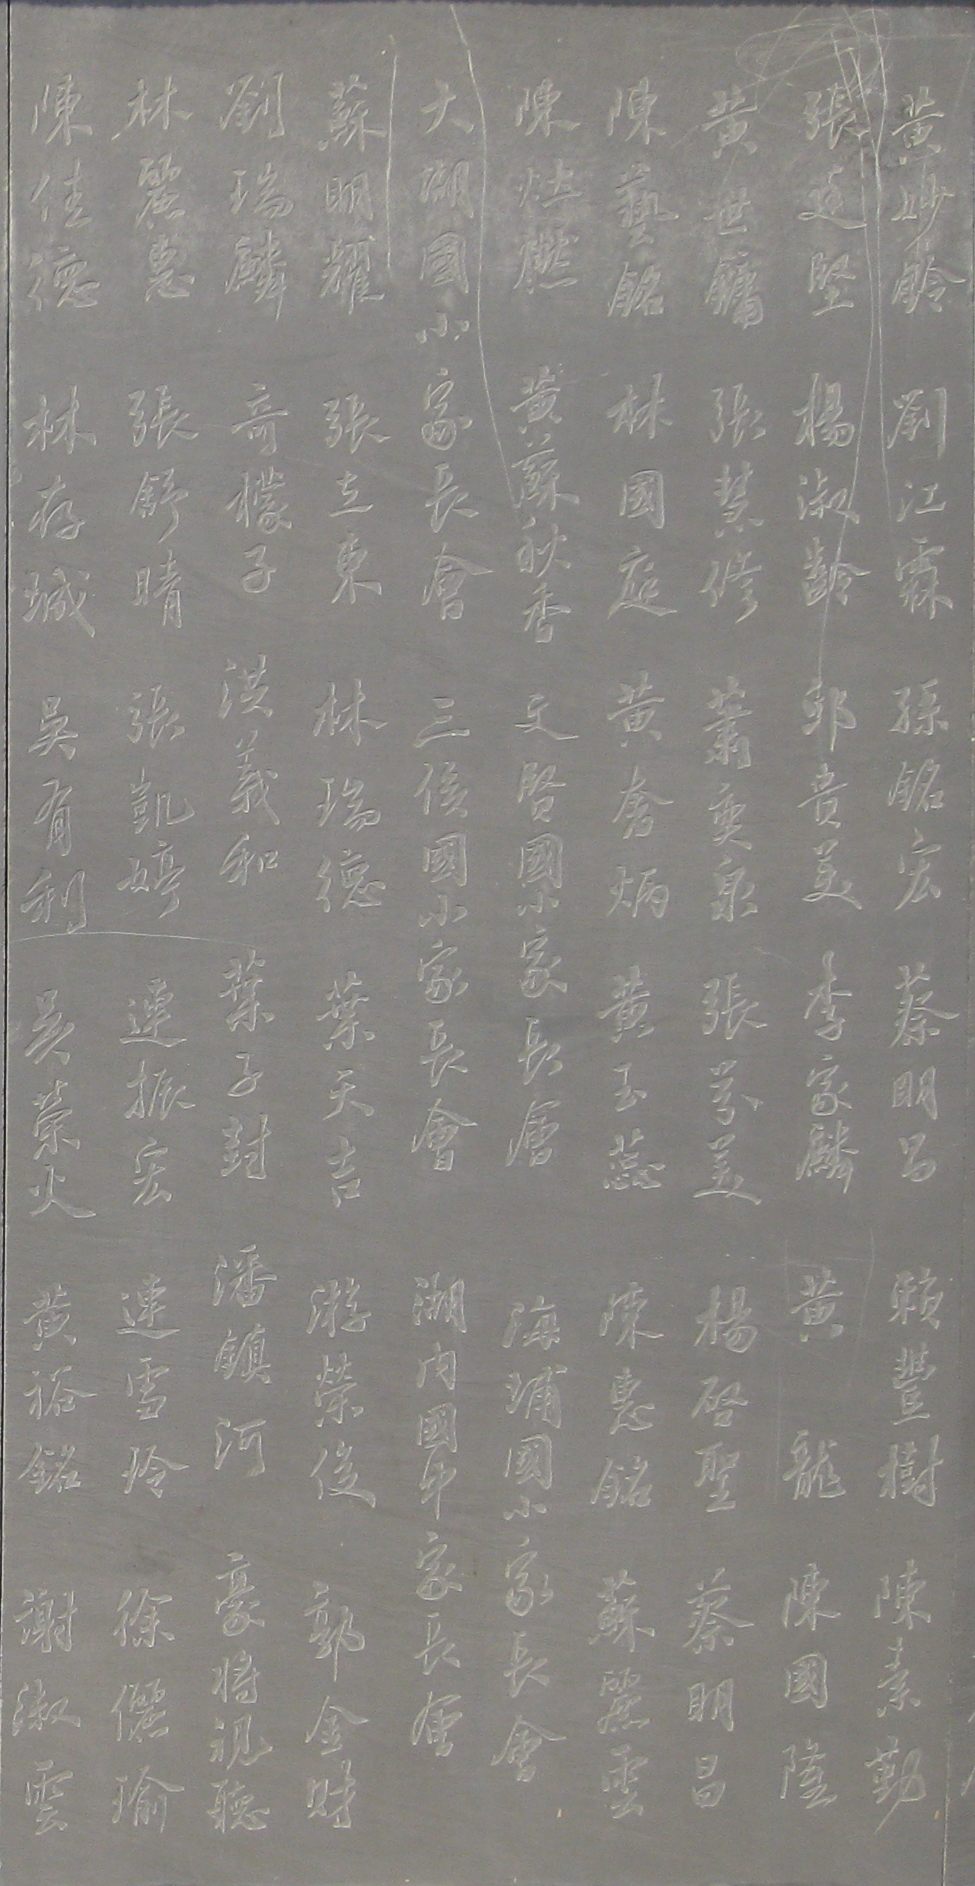 黃妙聆 劉江霖 孫銘宏 蔡明昌 賴豐樹 陳素勤
張連堅 楊淑齡 邱貴美 李家麟 黃龍 陳國隆
黃世鏞 張慧修 蕭奕泉 張芳美 楊啓聖 蔡明昌
陳藝銘 林國庭 黃奢炳 黃玉蕊 陳惠銘 蘇麗雲
陳 黃蘇秋香 文賢國小家長會 海埔國小家長會
大湖國小家長會 三侯國小家長會 湖內國中家長會
蘇明耀 張立東 林瑞德 葉天吉 游榮俊 郭金財
劉瑞麟 奇檬子 洪義和 葉子封 潘鎮河 豪將視聽
林麗惠 張舒晴 張凱婷 連振宏 連雪玲 徐儷瑜
陳佳德 林存城 吳有利 吳榮火 黃裕銘 謝淑雲